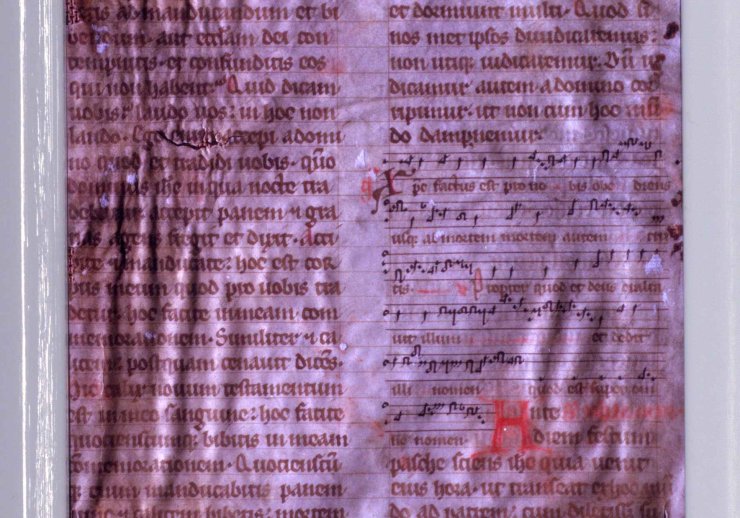 tis ad manducandum et bi
bendum. aut ecclam dei con
temptnitis. et confunditis eos
qui non habent. Quid dicam
uobis? laudo uos? in hoc non
laudo. Ego enim accepi a domi
no quod et tradidi uobis. quo
dominus ihc in qua nocte tra
debatur. accepit panem et gra
tias agens fregit et dixit. Acci
pite et manducate. hoc est cor
pus meum quod pro uobis tra
detur. hoc facite in meam com
memorationem. Similiter et ca
licem postquam cenauit dicens.
Hic calix nouum testamentum
est in meo sanguine. hoc facite
quotienscumque bibitis in meam
comemorationem. Quotienscu
que enim manducabitis panem
hunc et calicem bibetis. mortem
et dormiunt multi. Quod si
nos met ipsos diiudicaremus.
non utique iudicaremur. Dum iu
dicamur autem a domino cor
ripimur. ut non cum hoc mu
do dampnemur.
Xpc factus est pro no bis obe diens
usque ad mortem mortem autem cru
cis. Propter quod et deus exalta
uit illum et dedit
illi nomen quod est super om
ne nomen. Ante
diem festum
pasche sciens ihc quia uenit
eius hora. ut transeat ex hoc mu
do ad patrem. cum dilexisset su